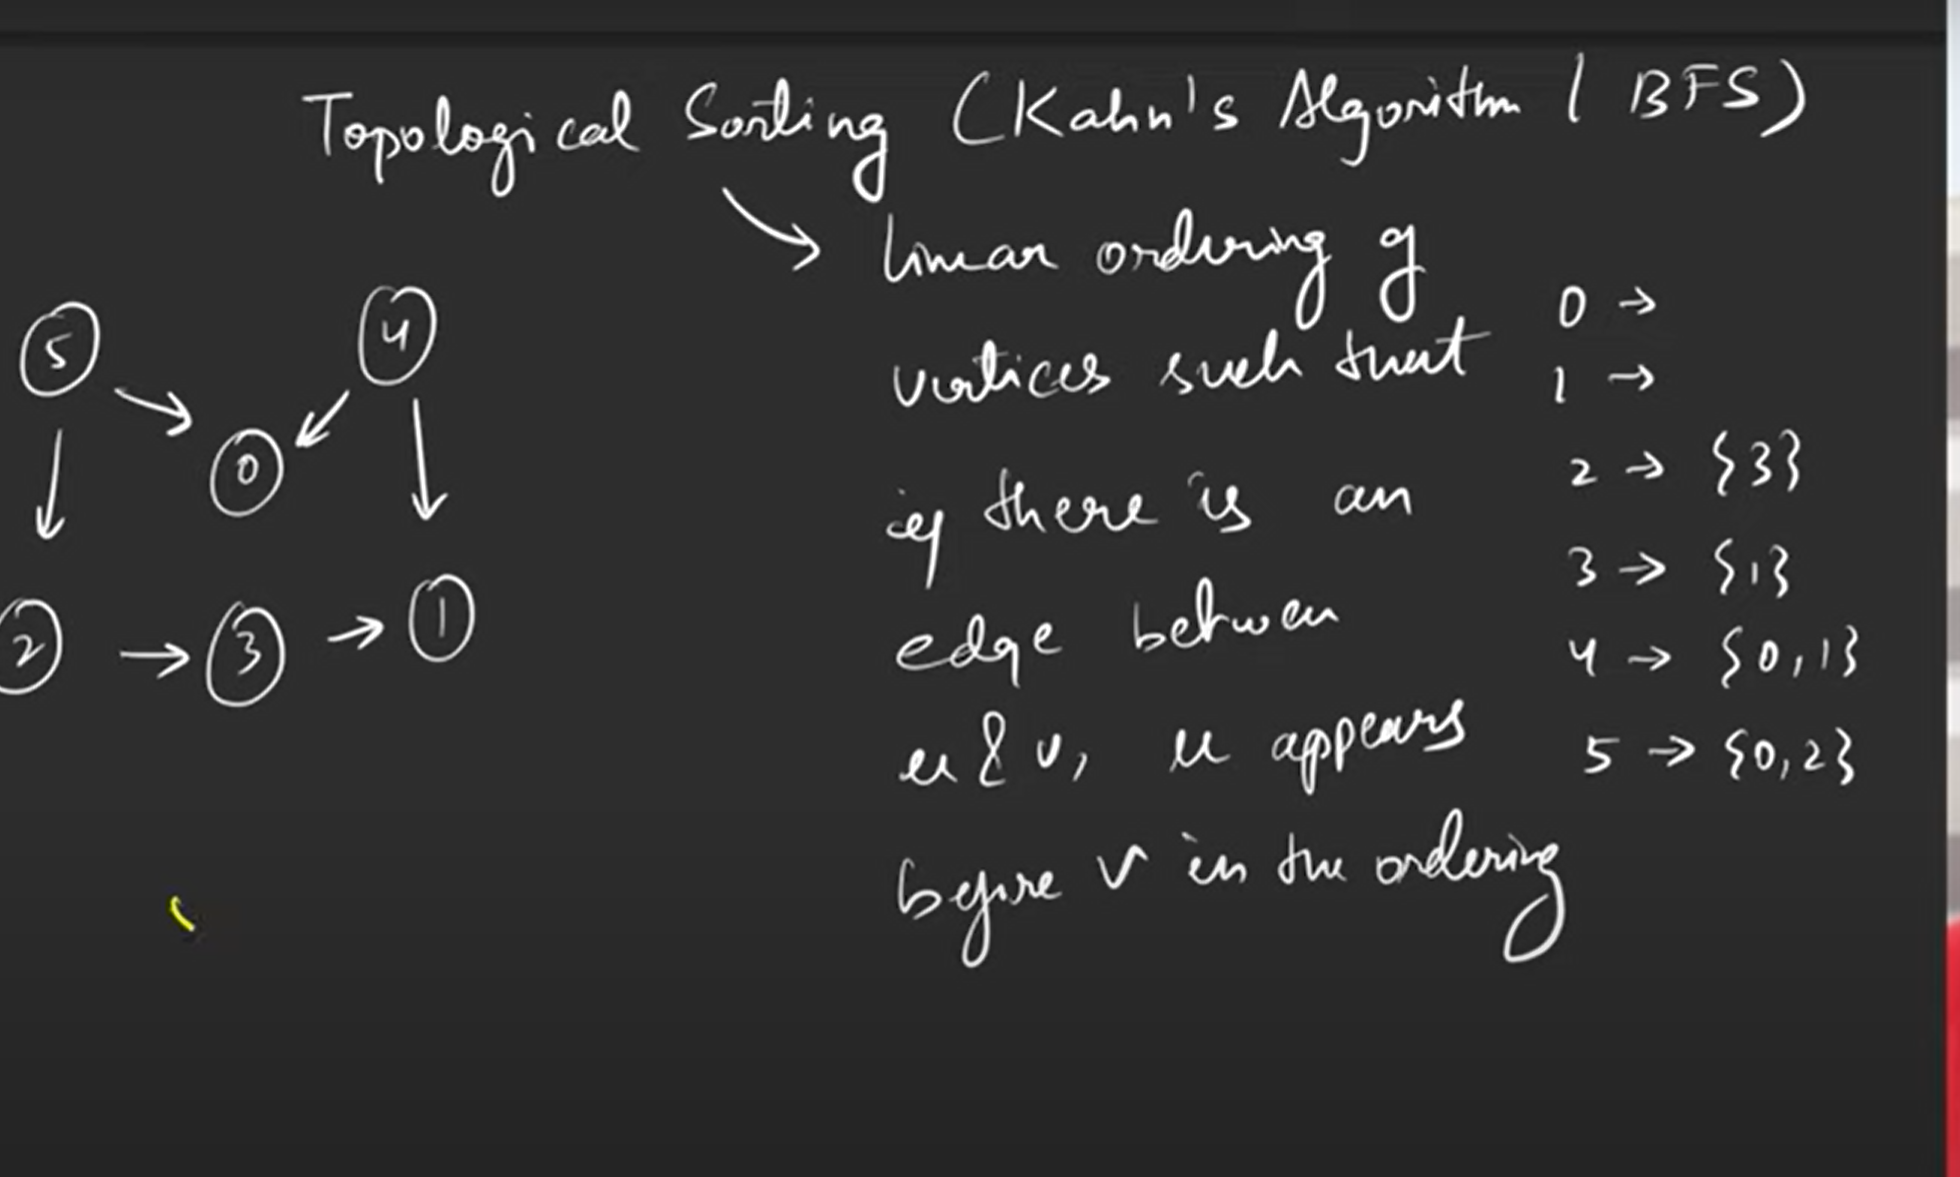 Topological Sorting (Kahn's Algorithm | BFS)
→ linear ordering of
vertices such that
if there is an
edge between
u & v, u appears
before v in the ordering
0 →
1 →
2 → {3}
3 → {1}
4 → {0,1}
5 → {0,2}
5 4
0
2 → 3 → 1